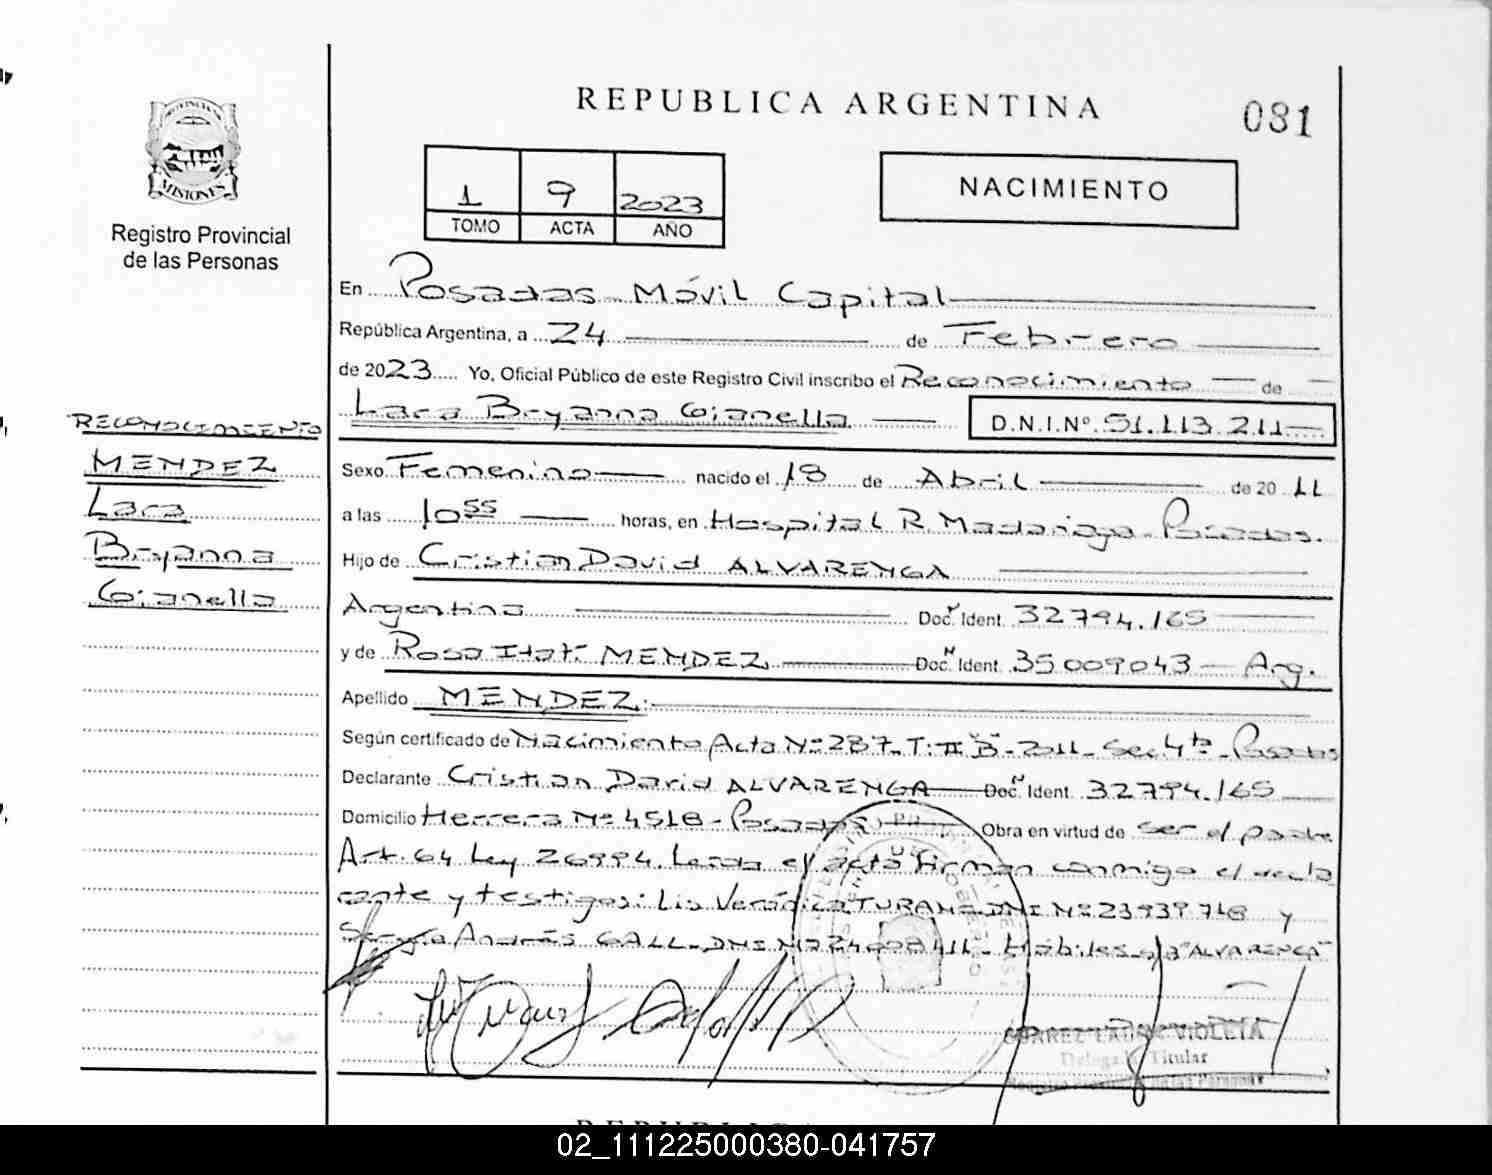 REPUBLICA ARGENTINA
081
PROVINCIA
MISIONES
Registro Provincial
de las Personas
1 9 2023
TOMO ACTA AÑO
NACIMIENTO
En Posadas Móvil Capital
República Argentina, a 24 de Febrero
de 2023 Yo, Oficial Público de este Registro Civil inscribo el Reconocimiento de
Lara Bryanna Gianella D.N.I.Nº 51.113.211
RECONOCIMIENTO
MENDEZ
Lara
Bryanna
Gianella
Sexo Femenino nacido el 18 de Abril de 2011
a las 10 55 horas, en Hospital R. Madariaga - Posadas.
Hijo de Cristian David ALVARENGA
Argentina Doc. Ident. 32794.165
y de Rosa Itatí MENDEZ Doc. Ident. 35009043 - Arg.
Apellido MENDEZ.
Según certificado de Nacimiento Acta Nº 287 - T: II "B" - 2011 - Sec. 4ta - Posadas
Declarante Cristian David ALVARENGA Doc. Ident. 32794.165
Domicilio Herrera Nº 4518 - Posadas Obra en virtud de ser el padre
Art. 64 Ley 26994. Leída el acta firman conmigo el decla
rante y testigos: Lia Verónica DNI Nº 23939748 y
Sergio Andrés GALL - DNI Nº Hábiles - "ALVARENGA"
SUAREZ LAURA VIOLETA
Delegada Titular
Registro Provincial de las Personas
02_111225000380-041757